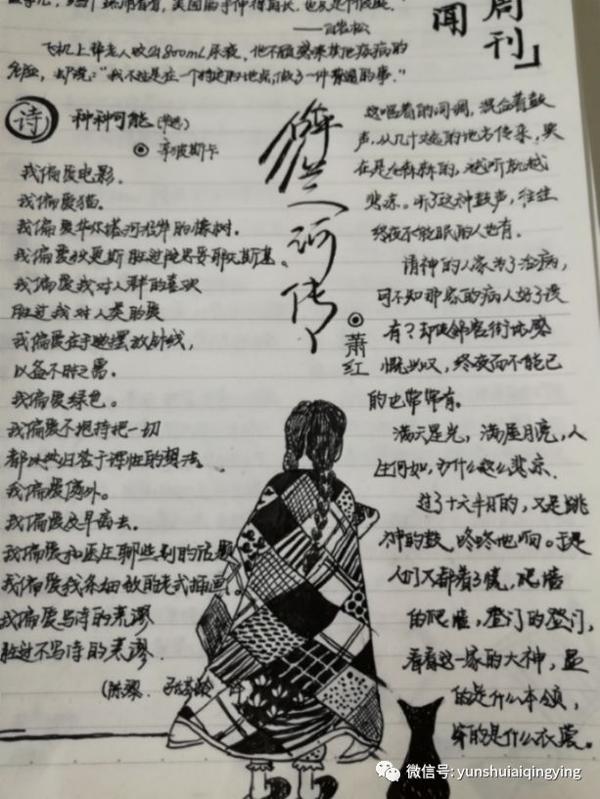 ——白岩松
飞机上帮老人吸出800mL尿液,他不顾
危险,却说:“我不过是在一个特定的地点,做了一件普通的事。”
周刊」
闻
诗
种种可能(节选)
辛波斯卡
我偏爱电影。
我偏爱猫。
我偏爱华尔塔河沿岸的橡树。
我偏爱狄更斯胜过陀思妥耶夫斯基。
我偏爱我对人群的喜欢
胜过我对人类的爱
我偏爱在手边摆放针线,
以备不时之需。
我偏爱绿色。
我偏爱不把持把一切
都归咎于理性的想法。
我偏爱例外。
我偏爱及早离去。
我偏爱和医生聊些别的话题
我偏爱线条细致的老式插画。
我偏爱写诗的荒谬
胜过不写诗的荒谬。
(陈黎、张芬龄 译
呼兰河传
萧红
这混着的词调,混合着鼓
声,从几十丈远的地方传来,实
在是冷森森的,越听就越
悲凉。听了这种鼓声,往往
终夜不能眠的人也有。
请神的人家为了治病,
可不知那家的病人好了没
有?却使邻居街坊感
慨兴叹,终夜而不能已
的也常常有。
满天星光,满屋月亮,人
生何如,为什么这么悲凉。
过了十天半月的,又是跳
神的鼓,咚咚地响。于是
人们又都着了慌,爬墙
的爬墙,登门的登门,
看看这一家的大神,显
的是什么本领,
穿的是什么衣裳。
微信号: yunshuiaiqingying